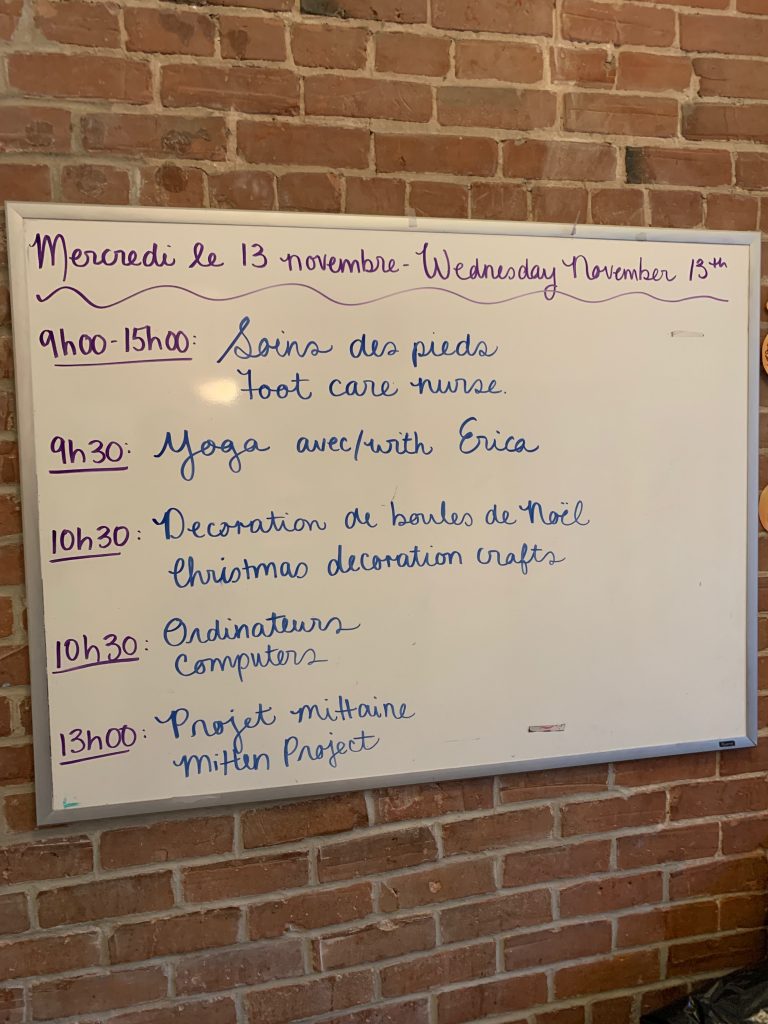 Mercredi le 13 novembre - Wednesday November 13th
9h00-15h00: Soins des pieds
Foot care nurse.
9h30: Yoga avec/with Erica
10h30: Decoration de boules de Noël
Christmas decoration crafts
10h30: Ordinateurs
Computers
13h00: Projet mittaine
Mitten Project